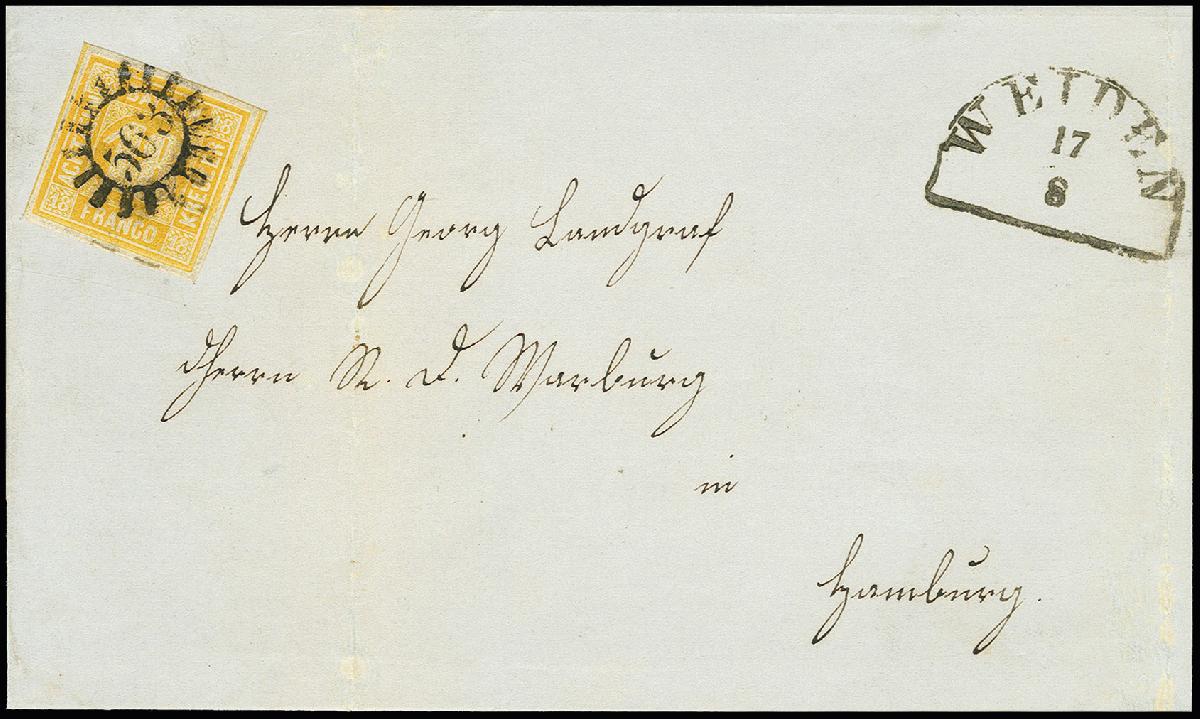 WEIDEN
17
8
18
ACHTZEHN
563
KREUZER
18
FRANCO
18
Herrn Georg Landgraf
Herrn R. D. Warburg
in
Hamburg.